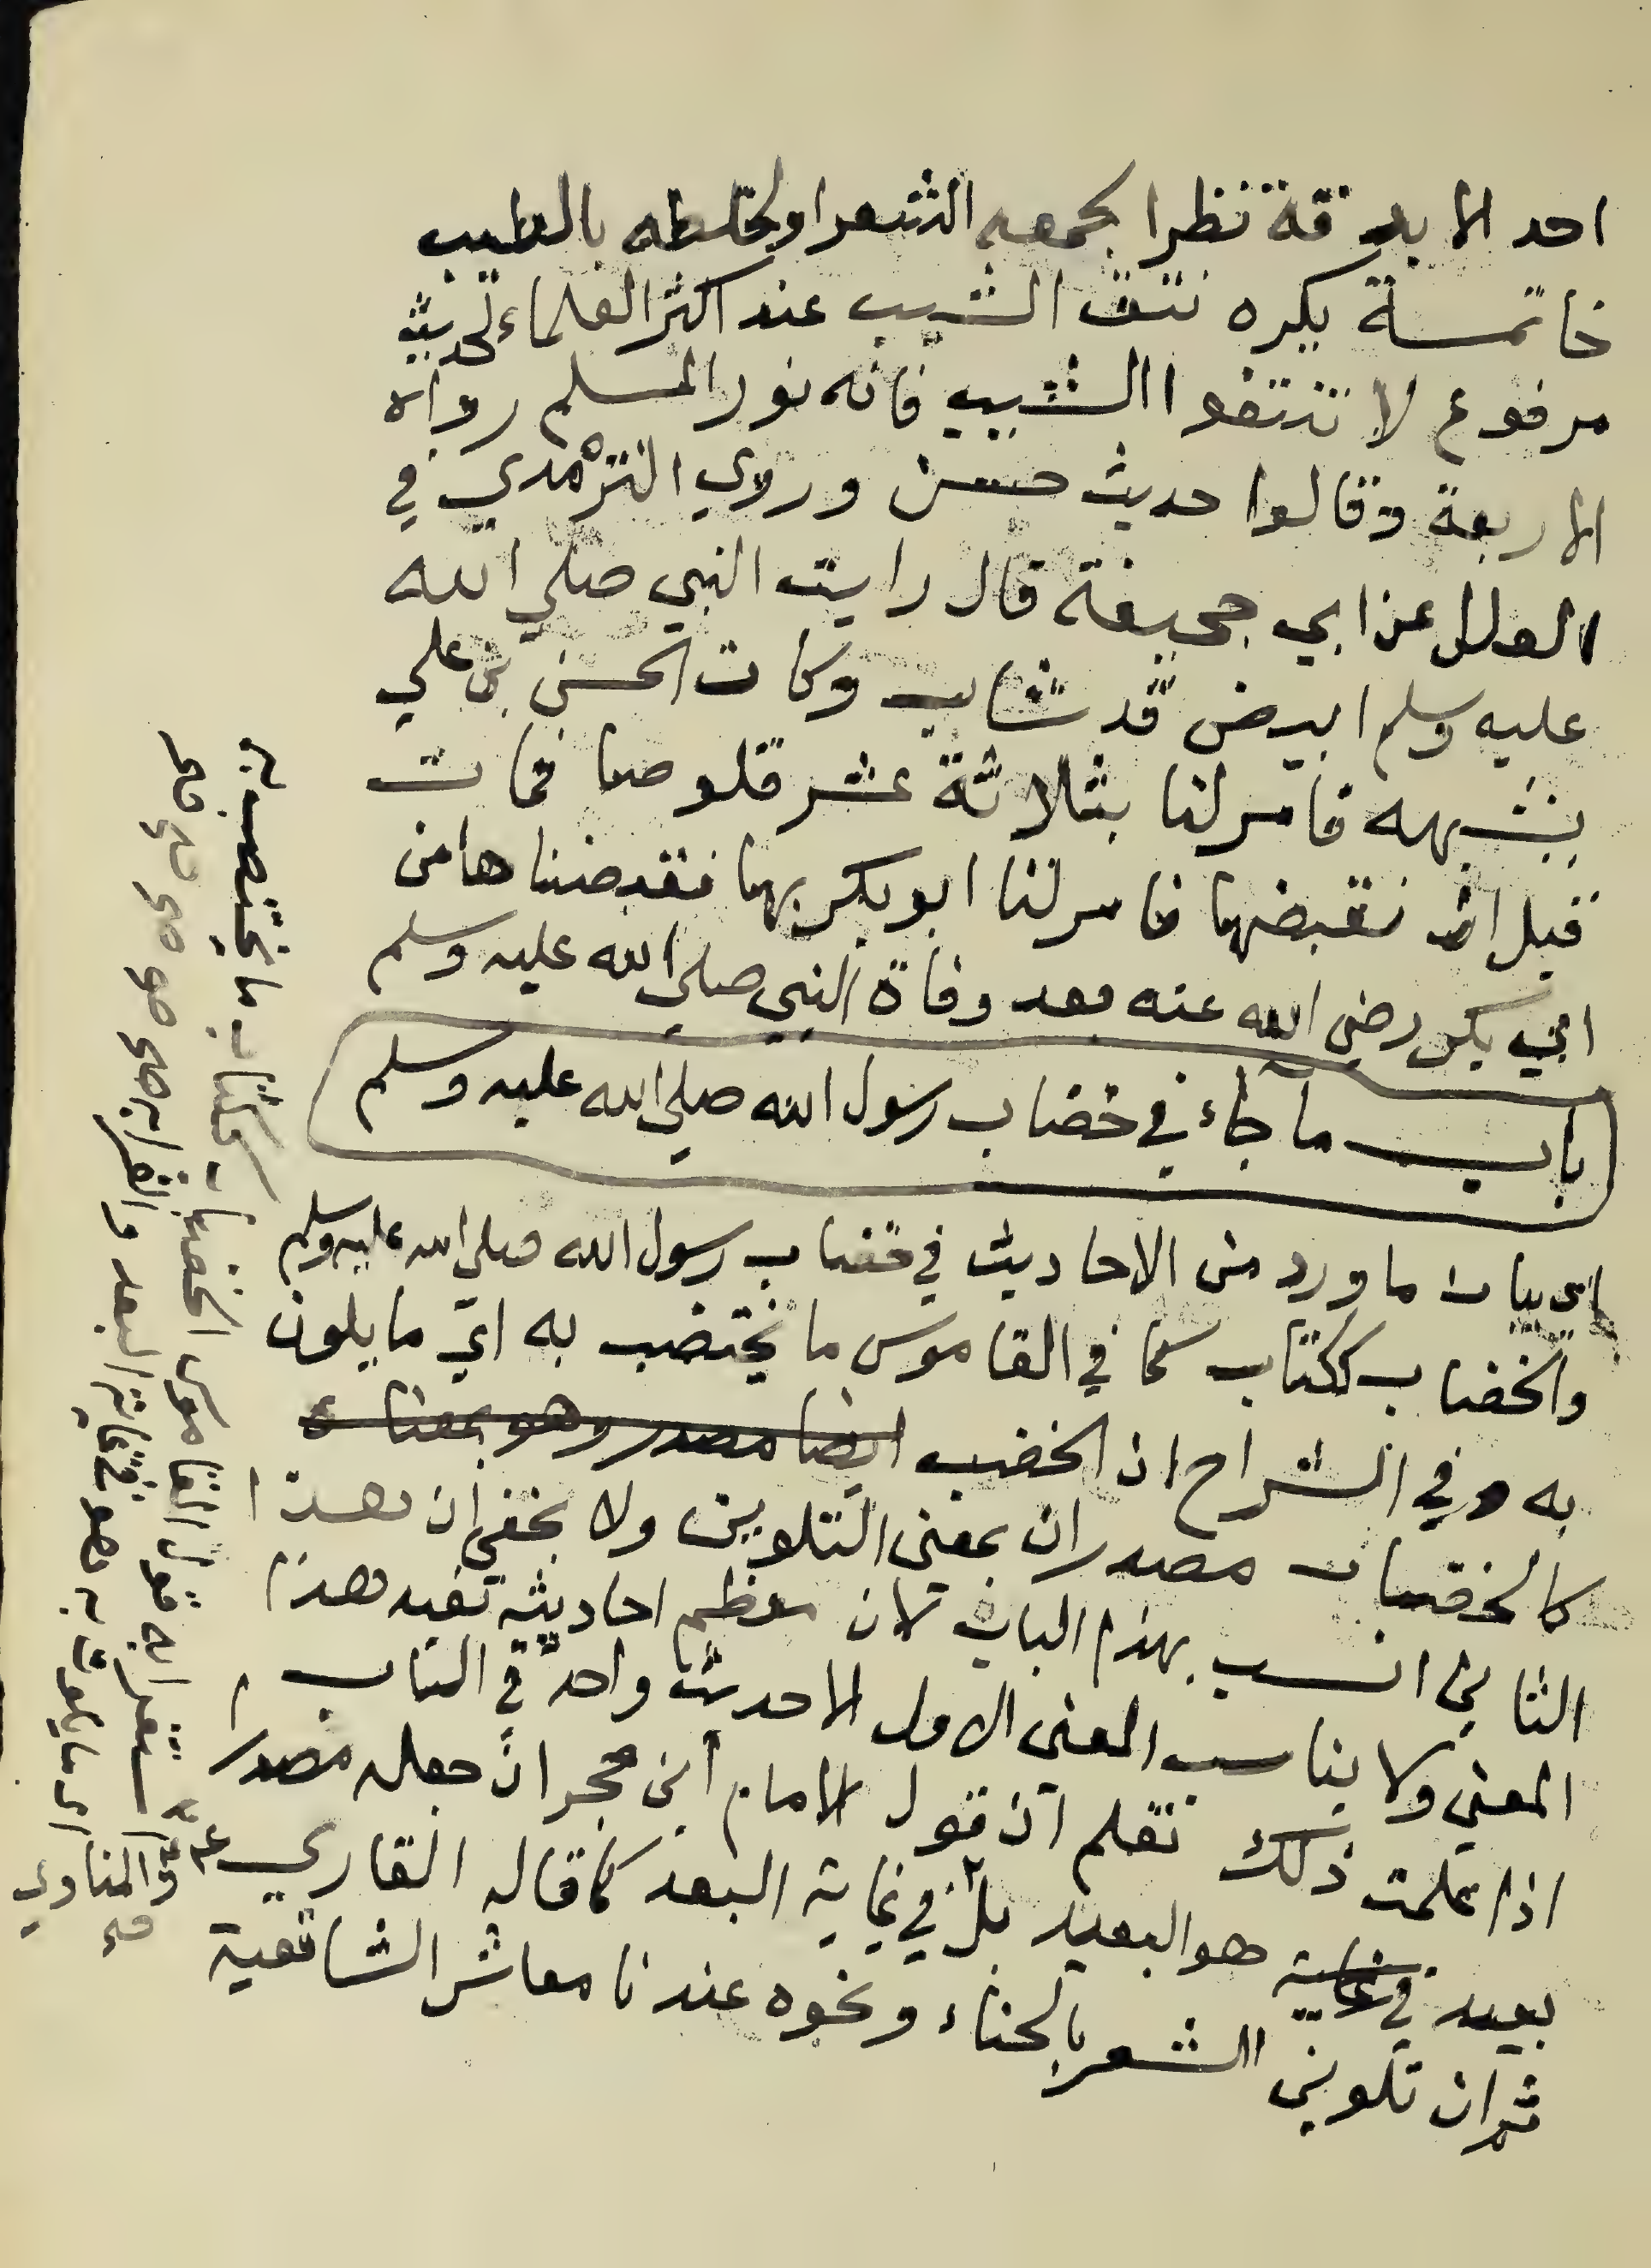 احد الا بدقة نظرا لجمعه الشعر او لخلطه بالطيب
خاتمة يكره نتف الشيب عند اكثر العلماء لحديث
مرفوع لا تنتفوا الشيب فانه نور المسلم رواه
الاربعة وقالوا حديث حسن وروي الترمذي في
العلل عن ابي جحيفة قال رايت النبي صلي الله
عليه وسلم ابيض قد شاب وكان الحسن بن علي
يشبهه فامر لنا بثلاثة عشر قلوصا فمات
قبل ان نقبضها فامر لنا ابو بكر بها فقبضناها من
ابي بكر رضي الله عنه بعد وفاة النبي صلي الله عليه وسلم
باب ما جاء في خضاب رسول الله صلي الله عليه وسلم
اي بيان ما ورد من الاحاديث في خضاب رسول الله صلي الله عليه وسلم
والخضاب ككتاب كما في القاموس ما يختضب به اي ما يلون
به وفي الشراح ان الخضب ايضا مصدر وهو بمعناه
كالخضاب مصدران بمعني التلوين ولا يخفي ان هذا
الثاني انسب بهذا الباب لان معظم احاديثه تفيد هذا
المعني ولا يناسب المعني الاول الا حديث واحد في الباب
اذا علمت ذلك تعلم ان قول الامام ابن حجر ان جعله مصدرا
بعيد في غاية هو البعيد بل في غاية البعد كما قاله القاري
والمناوي
ثم ان تلوين الشعر بالحناء ونحوه عندنا معاشر الشافعية
ككتاب ما يختضب به